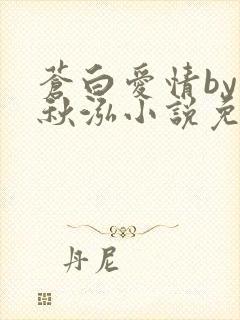 蒼白愛情by
秋泓小說免
丹尼